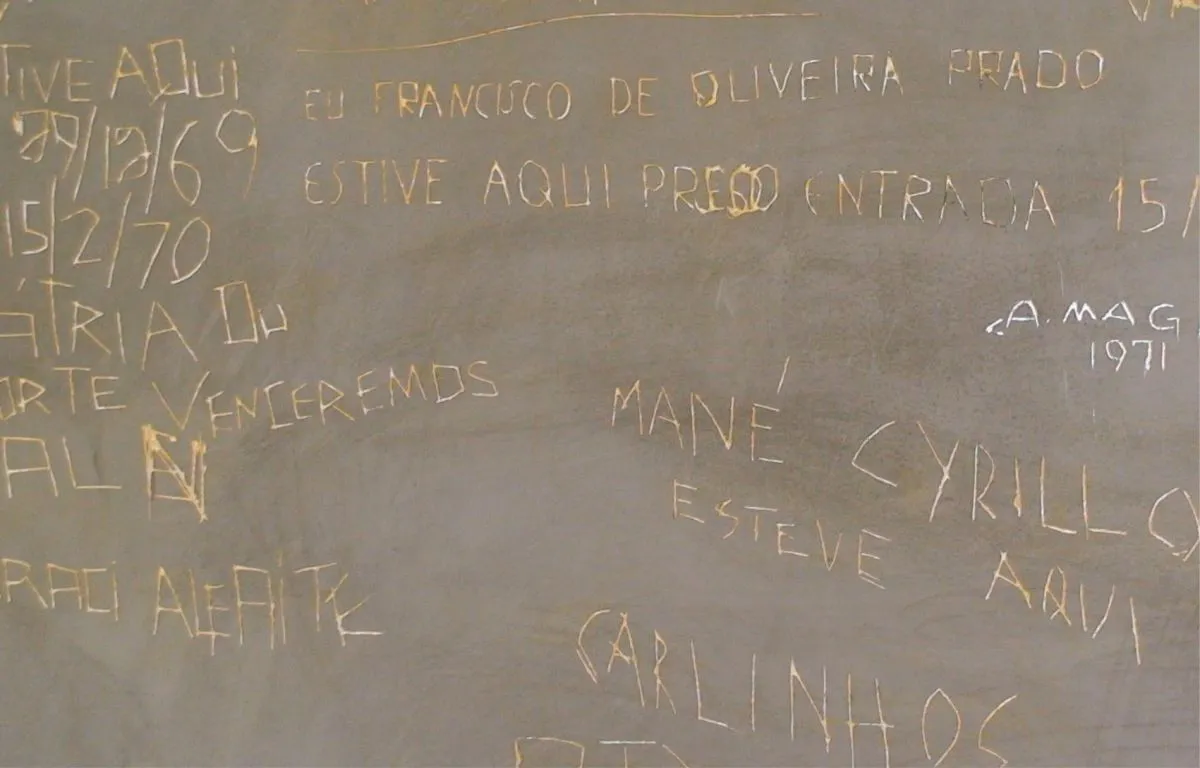 TIVE AQUI
29/12/69
15/2/70
ÁTRIA OU
ORTE VENCEREMOS
AL
EU FRANCISCO DE OLIVEIRA PRADO
ESTIVE AQUI PRESO ENTRADA 15/
A. MAG
1971
MANÉ CYRILLO
ESTEVE AQUI
CARLINHOS